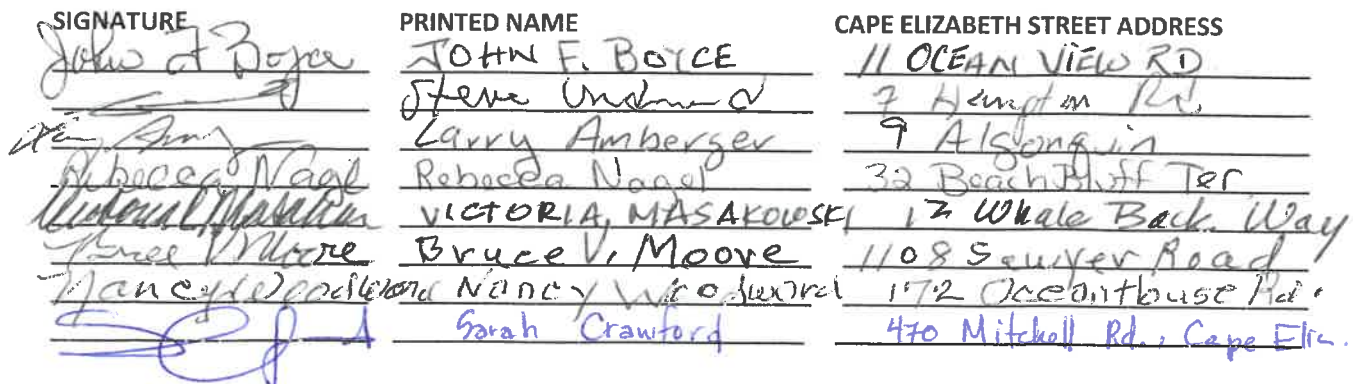 SIGNATURE PRINTED NAME CAPE ELIZABETH STREET ADDRESS
John F Boyce JOHN F. BOYCE 11 OCEAN VIEW RD
Steve 7 Hampton Rd.
Larry Amberger 9 Algonquin
Rebecca Nagel Rebecca Nagel 32 Beach Bluff Ter
VICTORIA, MASAKOWSKI 12 Whale Back Way
Bruce V Moore Bruce V. Moore 1108 Sawyer Road
Nancy Woodward Nancy Woodward 172 Oceanhouse Rd.
Sarah Crawford 470 Mitchell Rd., Cape Eliz.